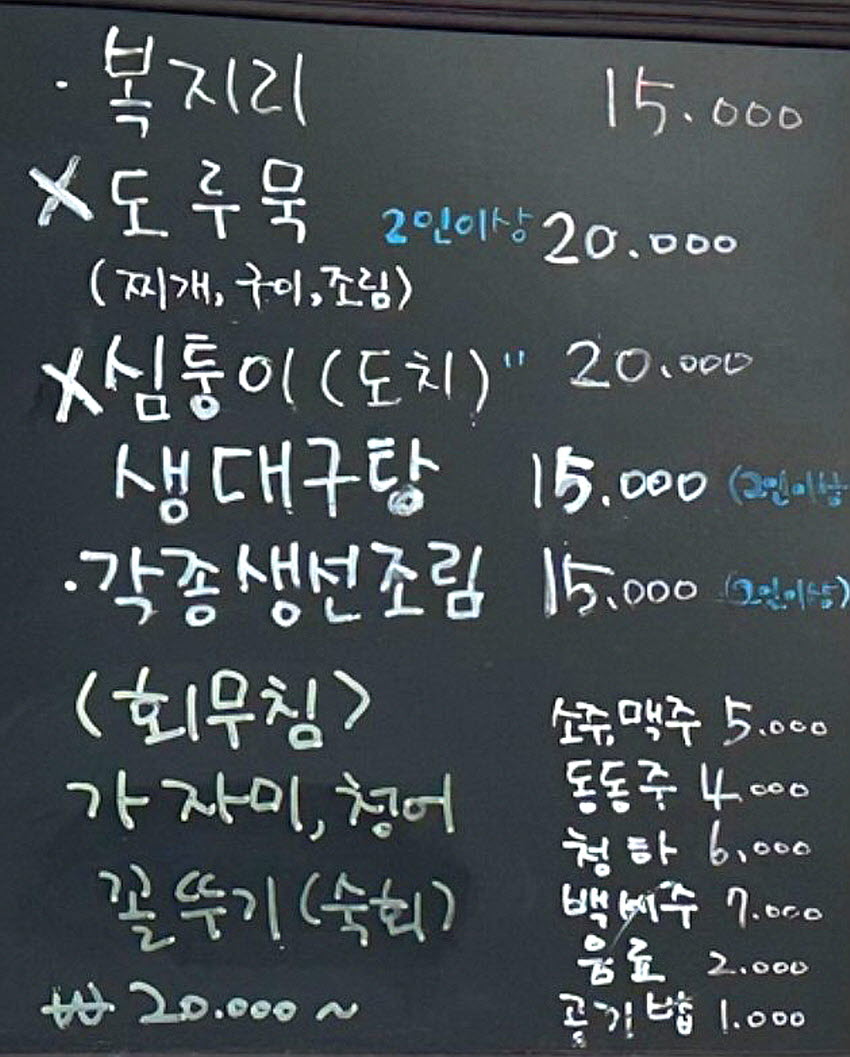 · 복지리 15.000
X 도루묵 2인이상 20.000
(찌개, 구이, 조림)
X 심퉁이 (도치) " 20.000
생대구탕 15.000 (2인이상
· 각종생선조림 15.000 (2인이상)
<회무침>
가자미, 청어
꼴뚜기 (숙회)
₩ 20.000 ~
소주, 맥주 5.000
동동주 4.000
청하 6,000
백세주 7.000
음료 2.000
공기밥 1.000